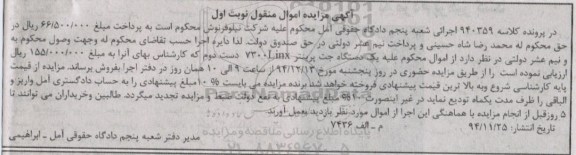 آگهی مزایده اموال منقول نوبت اول
در پرونده کلاسه ۹۴۰۳۵۹ اجرائی شعبه پنجم دادگاه حقوقی آمل محکوم علیه شرکت نیلوفرنوش محکوم است به پرداخت مبلغ ۶۶/۵۰۰/۰۰۰ ریال در
حق محکوم له محمد رضا شاه حسینی و پرداخت نیم عشر دولتی در حق صندوق دولت. لذا دایره اجرا حسب تقاضای محکوم له وجهت وصول محکوم به
و نیم عشر دولتی در نظر دارد از اموال محکوم علیه یک دستگاه جت پرینتر ۷۳۰۰Linx دست دوم که کارشناس بهای آنرا به مبلغ ۱۵۵/۰۰۰/۰۰۰ ریال
ارزیابی نموده است را از طریق مزایده حضوری در روز پنجشنبه مورخ ۹۴/۱۲/۱۳ از ساعت ۹ الی ۱۰ همان روز در دفتر اجرا بفروش برساند. مزایده از قیمت
پایه کارشناسی شروع وبه بالا ترین قیمت پیشنهادی فروخته خواهد شد برنده مزایده می بایست ۱۰% مبلغ پیشنهادی را به حساب دادگستری آمل واریز و
الباقی را ظرف مدت یکماه تودیع نماید در غیر اینصورت ۱۰% مبلغ پیشنهادی به نفع دولت ضبط و مزایده تجدید میگردد. طالبین وخریداران می توانند تا
۵ روزقبل از انجام مزایده با هماهنگی این اجرا از اموال مورد نظر بازدید بعمل آورند.
تاریخ انتشار: ۹۴/۱۱/۲۵ م - الف ۷۴۳۶
مدیر دفتر شعبه پنجم دادگاه حقوقی آمل - ابراهیمی